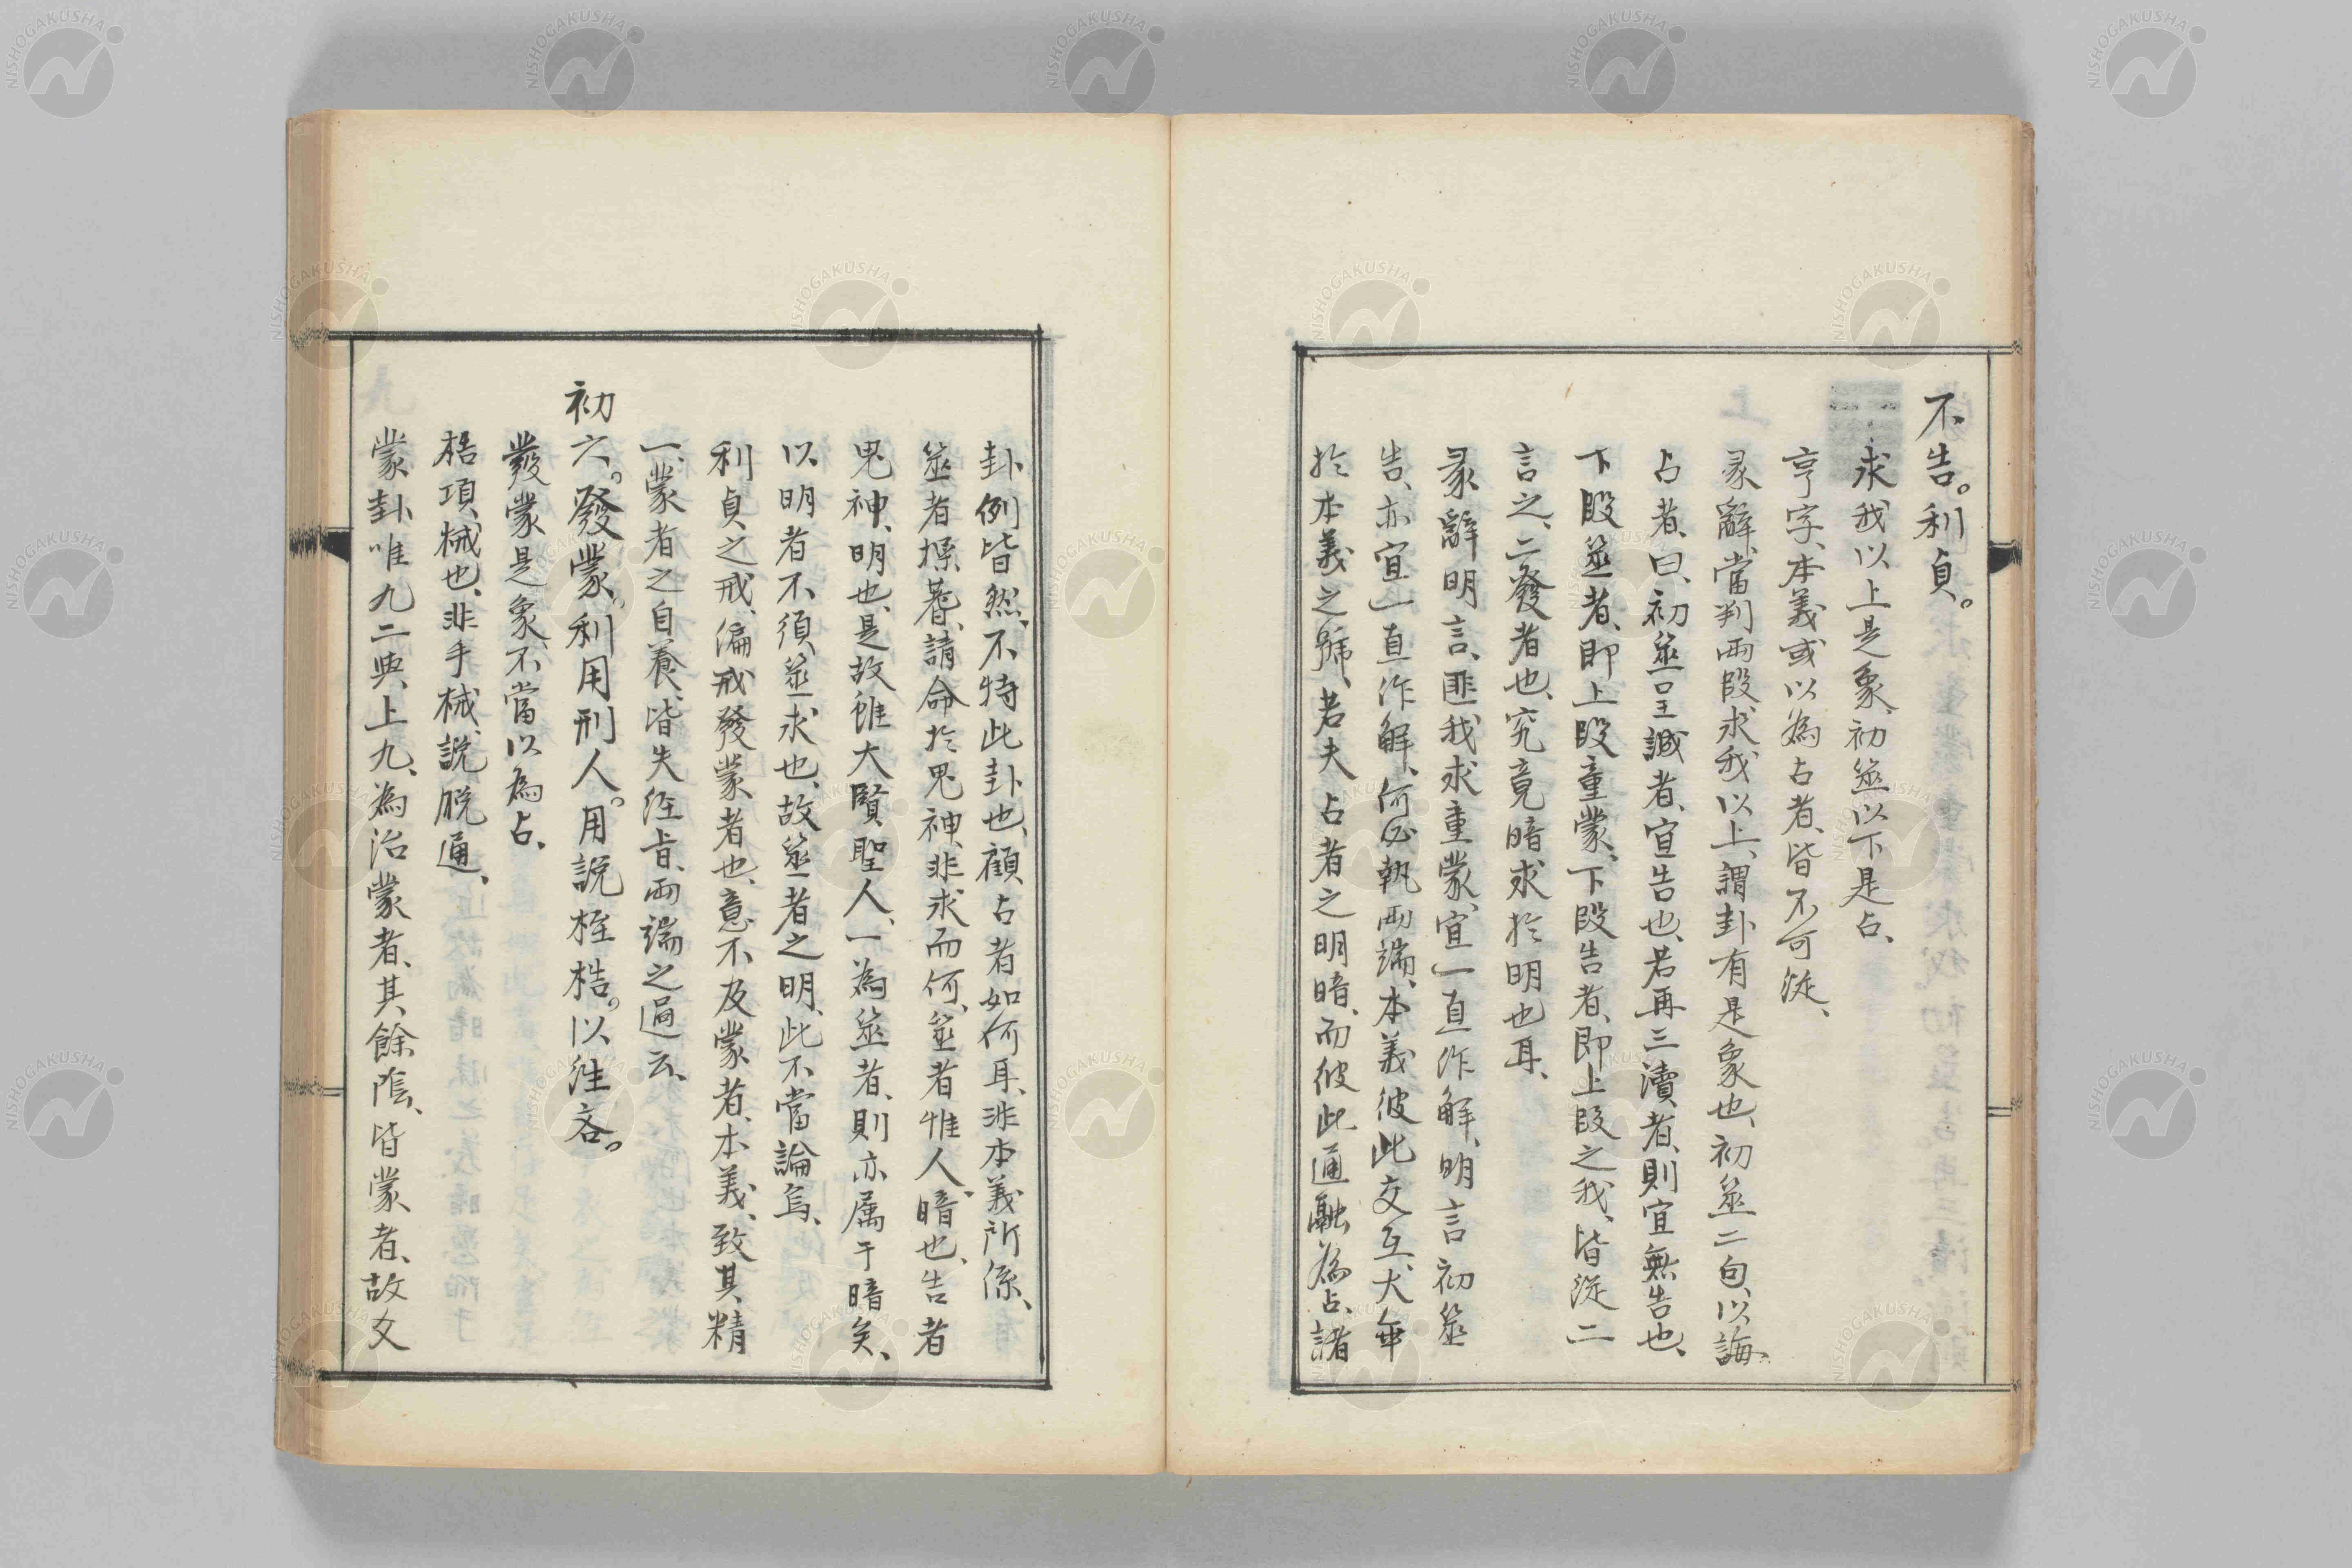 不告。利貞。
求我以上是象、初筮以下是占、
亨字、本義或以為占者、皆不可從、
彖辭、當判兩段、求我以上、謂卦有是象也、初筮二句、以誨
占者、曰、初筮呈誠者、宜告也、若再三瀆者、則宜無告也、
下段筮者、即上段童蒙、下段告者、即上段之我、皆從二
言之、二發者也、究竟暗求於明也耳、
彖辭明言、匪我求童蒙、宜一直作解、明言初筮
告、亦宜一直作解、何必執兩端、本義彼此交互、大無
於本義之號、若夫占者之明暗、而彼此通融為占、諸
卦例皆然、不特此卦也、顧占者如何耳、涉本義所係、
筮者揲蓍、請命於鬼神、非求而何、筮者惟人、暗也、告者
鬼神、明也、是故雖大賢聖人、一為筮者、則亦属于暗矣、
以明者不須筮求也、故筮者之明、此不當論焉、
利貞之戒、偏戒發蒙者也、意不及蒙者、本義、致其精
一、蒙者之自養、皆失經旨、兩端之過云、
初六。發蒙。利用刑人。用説桎梏。以往吝。
發蒙是象、不當以為占、
梏項械也、非手械、説脱通、
蒙卦唯九二與上九、為治蒙者、其餘陰、皆蒙者、故爻